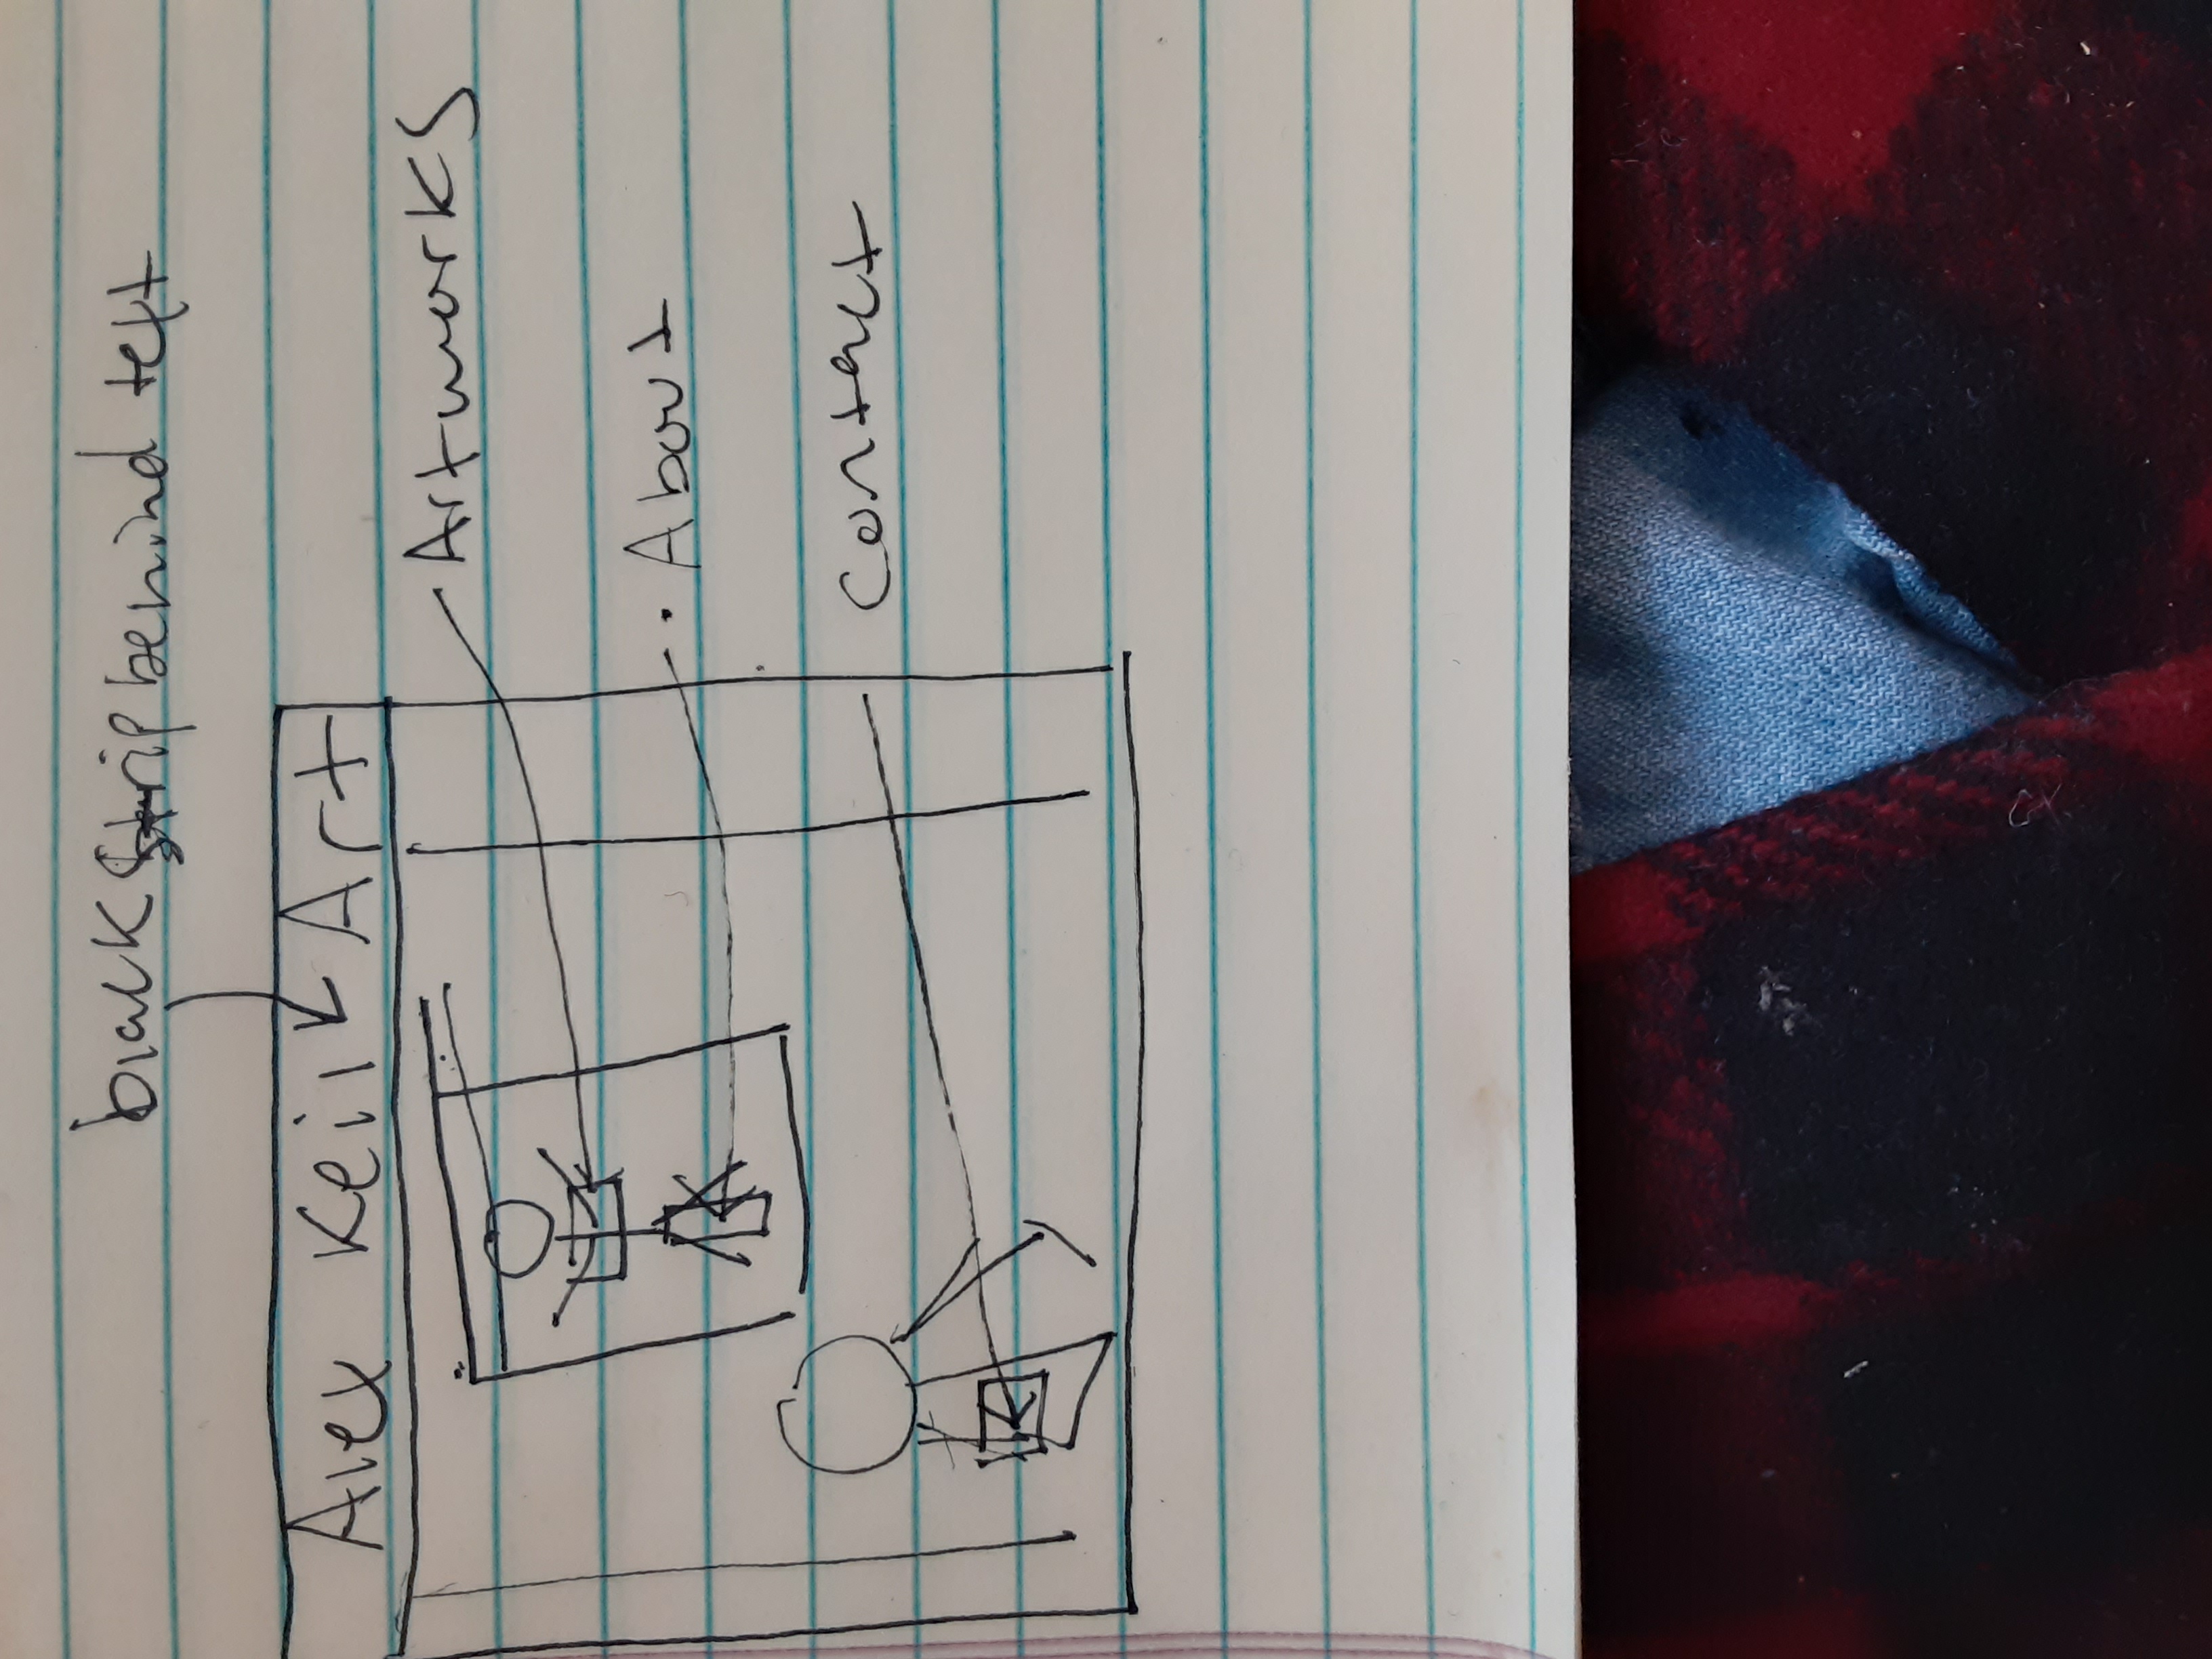 black strip behind text
Alex Keil Art
Artworks
About
Contact